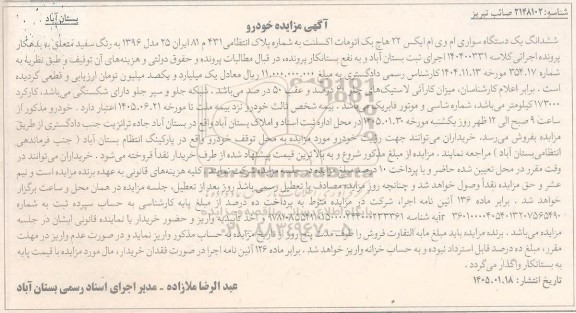 شناسه: ۲۱۴۸۱۰۲ صائب تبریز
بستان آباد
آگهی مزایده خودرو
ششدانگ یک دستگاه سواری ام وی ام ایکس ۲۲ هاچ بک اتومات اکسلنت به شماره پلاک انتظامی ۴۳۱ م ۸۱ ایران ۲۵ مدل ۱۳۹۶ به رنگ سفید متعلق به بدهکار
پرونده اجرائی کلاسه ۱۴۰۲۰۰۳۳۱ اجرای ثبت بستان آباد و به نفع بستانکار پرونده، در قبال مطالبات پرونده و حقوق دولتی و هزینه‌های آن توقیف و طبق نظریه به
شماره ۳۵۴.۱۷ مورخه ۱۴۰۴.۱۱.۱۳ کارشناس رسمی دادگستری به مبلغ ۱۱،۰۰۰،۰۰۰،۰۰۰ ریال معادل یک میلیارد و یکصد میلیون تومان ارزیابی و قطعی گردیده
است. برابر اعلام کارشناس، میزان کارآئی لاستیک‌های صد و عقب ۵۰ در صد می‌باشد. شبکه جلو و سپر جلو دارای شکستگی می‌باشد، کارکرد
۱۷۳۰۰۰ کیلومتر می‌باشد، شاسی و موتور فابریک می‌باشد، بیمه شخص ثالث خودرو نزد بیمه ملت تا مورخه ۱۴۰۵.۰۶.۲۱ اعتبار دارد. خودرو مذکور از
ساعت ۹ صبح الی ۱۲ ظهر روز یکشنبه مورخه ۱۴۰۵.۰۱.۳۰ در محل اداره ثبت اسناد و املاک بستان آباد واقع در بستان آباد جاده ترانزیت جنب دادگستری از طریق
مزایده بفروش می‌رسد، خریداران می‌توانند جهت رویت خودرو مورد مزایده به محل توقف خودرو واقع در پارکینگ انتظام بستان آباد ( جنب فرماندهی
انتظامی بستان آباد ) مراجعه نمایند. مزایده از مبلغ مذکور شروع و به بالاترین قیمت پیشنهاد شده از طرف خریدار نقداً فروخته می‌شود. خریداران می‌توانند در
وقت مقرر در محل تعیین شده حاضر و با پرداخت ۱۰ کلیه هزینه‌های قانونی به عهده برنده مزایده است و نیم
عشر و حق مزایده نقداً وصول خواهد شد و چنانچه روز مزایده مصادف با تعطیل رسمی باشد روز بعد از تعطیل، جلسه مزایده در همان محل و ساعت برگزار
خواهد شد. برابر ماده ۱۳۶ آئین نامه اجرا، شرکت در مزایده منوط به پرداخت ده درصد از مبلغ پایه کارشناسی به حساب سپرده ثبت به شماره
واریز و حضور خریدار یا نماینده قانونی ایشان در جلسه
مزایده می‌باشد. برنده مزایده باید مبلغ مابه التفاوت فروش را ظرف مدت پنج روز از تاریخ مزایده به حساب مذکور واریز نماید و در صورت عدم واریز در مهلت
مقرر، مبلغ ده درصد قابل استرداد نبوده و به حساب خزانه واریز خواهد شد. برابر ماده ۱۲۶ آئین نامه اجرا در صورت فقدان خریدار، مال مورد مزایده با قیمت پایه
به بستانکار واگذار می‌گردد.
تاریخ انتشار: ۱۴۰۵.۰۱.۱۸
عبد الرضا ملازاده - مدیر اجرای اسناد رسمی بستان آباد
ParsNamadData
۰۲۱-۸۸۳۴۹۶۷۰-۵